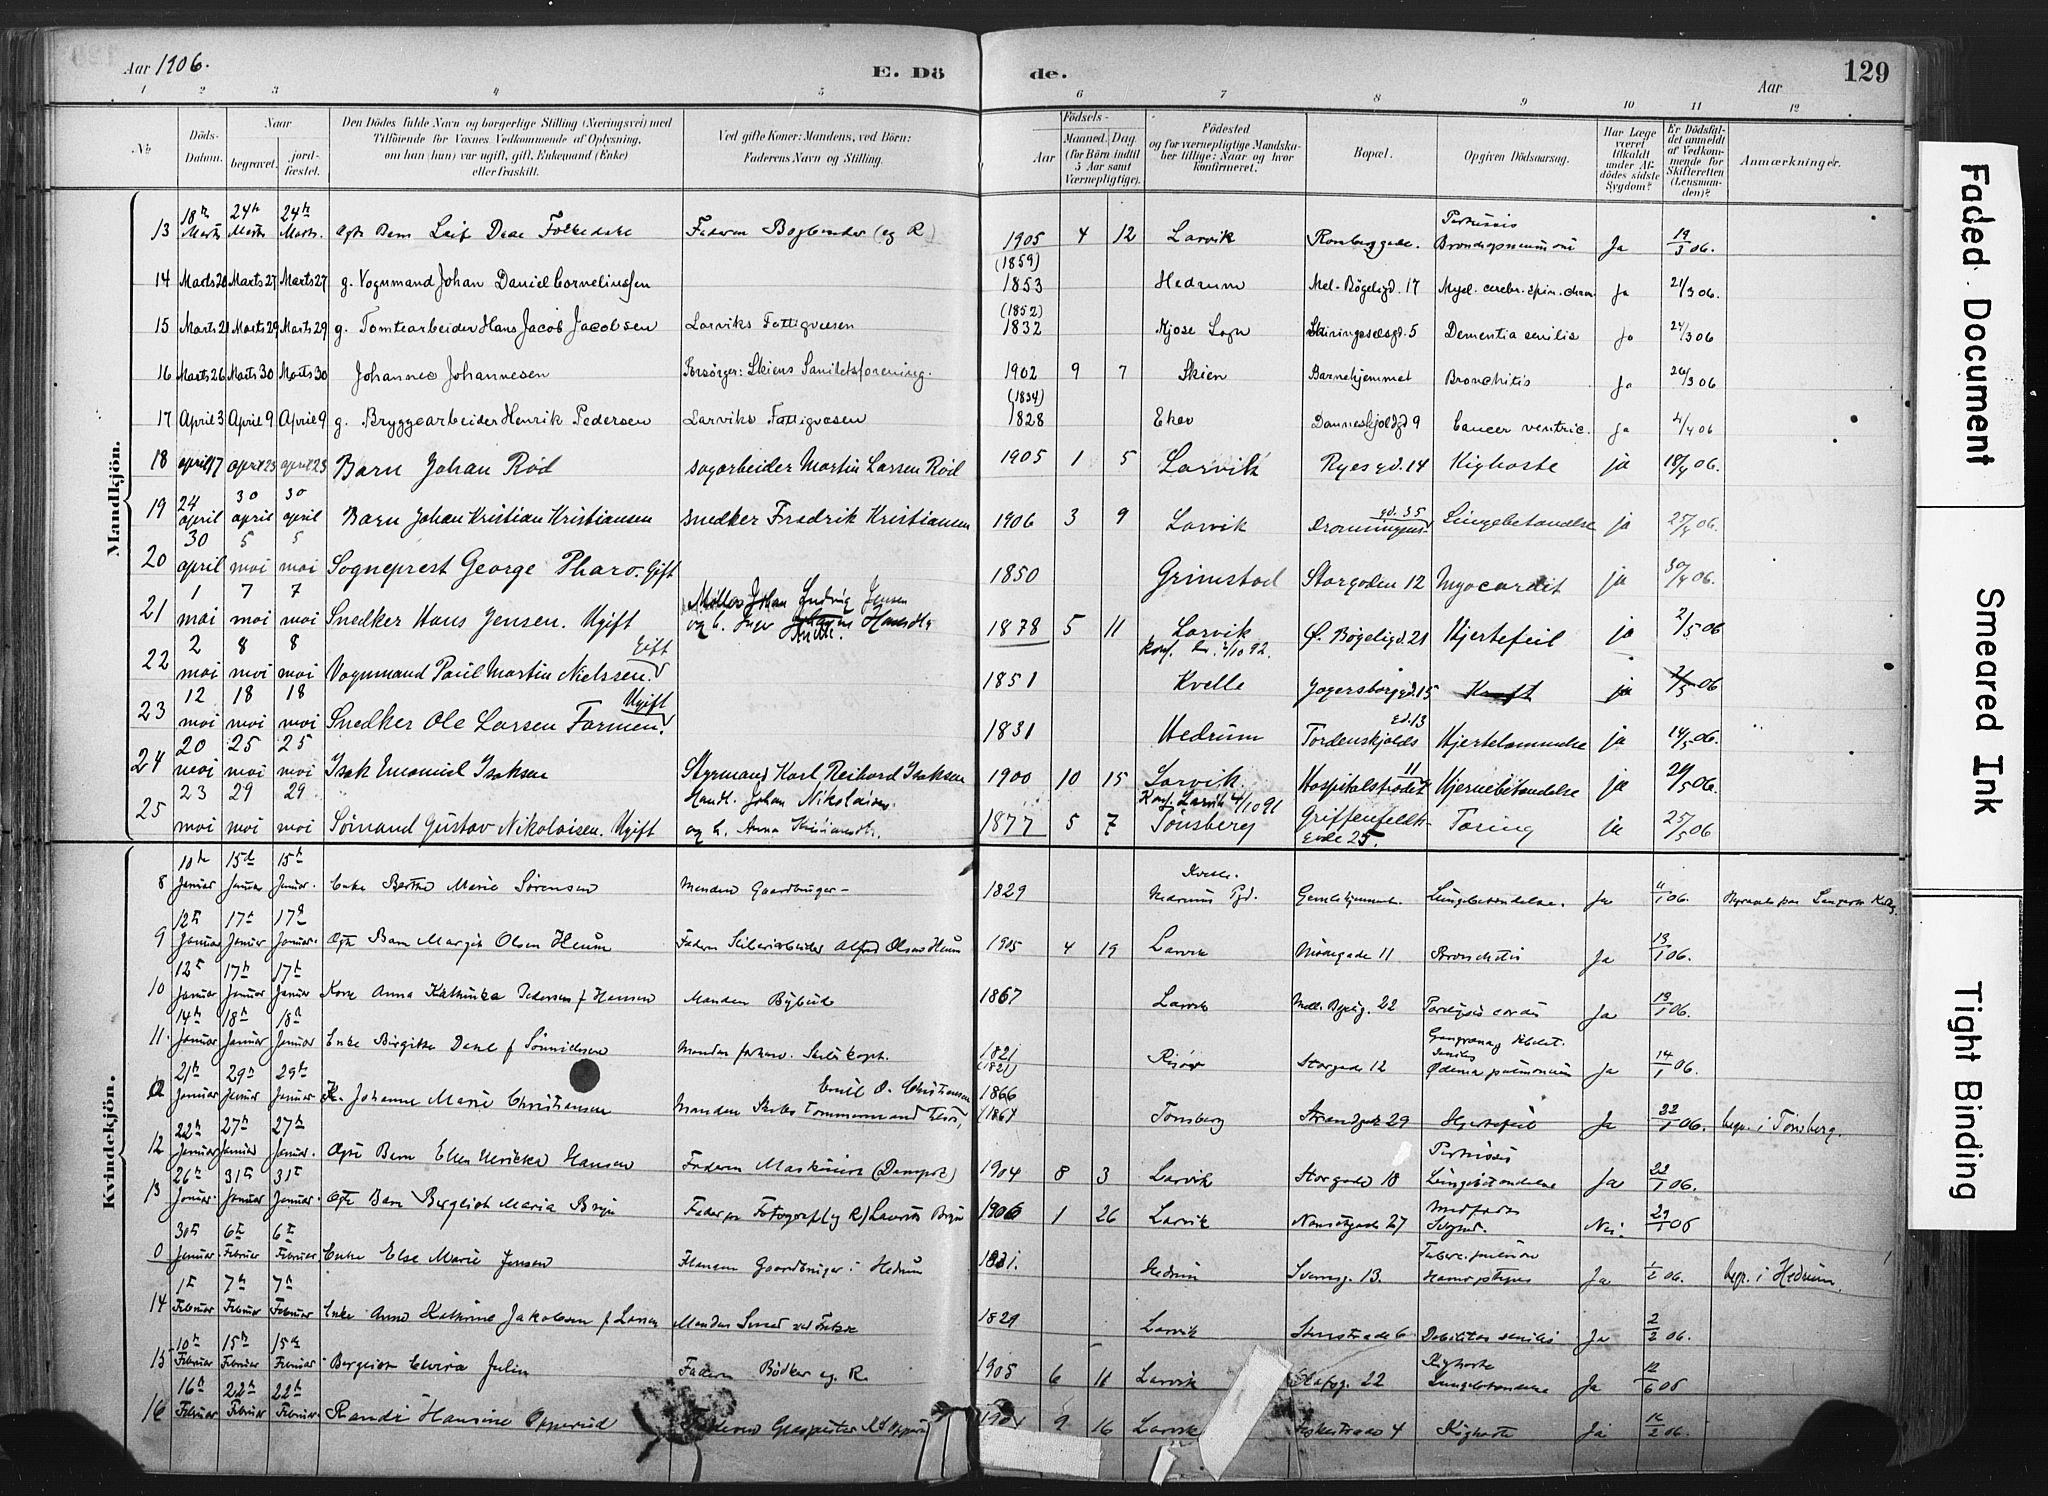 Aar 1906. E. Dö de. Aar 129
1 2 3 4 5 6 7 8 9 10 11 12
No Döds-Datum. Naar begravet. jordfæstet. Den Dödes fulde Navn og borgerlige Stilling (Næringsvei) med Tilföiende for Voxnes Vedkommende af Oplysning, om han (hun) var ugift, gift, Enkemand (Enke) eller fraskilt. Ved gifte Koner: Mandens, ved Börn: Faderens Navn og Stilling. Födsels- Aar Maaned. Dag. (for Börn indtil 5 Aar samt Værnepligtige). Födested og for værnepligtige Mandskaber tillige: Naar og hvor konfirmeret. Bopæl. Opgiven Dödsaarsag. Har Læge været tilkaldt under Afdödes sidste Sygdom? Er Dödsfaldet anmeldt af Vedkommende for Skifteretten (Lensmanden)? Anmærkninger.
Mandkjön.
13 18de Marts 24de Marts 24de Marts. Ægte Barn Leif Faderen Bogbinder (eg R) 1905 4 12 Larvik Bronchopneumoni Ja 19/3 06.
14 Marts 20 Marts 27 Marts 27 g. Vognmand Johan Daniel Corneliussen (1859) 1853 Hedrum Mel-Bögeligd. 17 Myel. cerebr. spin. chron Ja 21/3 06.
15 Marts 21 Marts 29 Marts 29 g. Tomtearbeider Hans Jacob Jacobsen Larviks Fattigvæsen (1852) 1832 Kjose Sogn Skiringssalsgd. 5 Dementia senilis Ja 24/3 06
16 Marts 26 Marts 30 Marts 30 Johannes Johannesen Forsörger: Skiens Sanitetsforening. 1902 9 7 Skien Barnehjemmet Bronchitis Ja 26/3 06
17 April 3 April 9 April 9 g. Bryggearbeider Henrik Pedersen Larviks Fattigvæsen (1834) 1828 Eker Danneskjoldgd 9 Cancer ventric. Ja 4/4 06
18 april 17 april 23 april 23 Barn Johan Röd Sagarbeider Martin Larsen Röd 1905 1 5 Larvik Ryesgd. 14 Kighoste ja 18/4 06.
19 24 april 30 april 30 april Barn Johan Kristian Kristiansen Snedker Fredrik Kristiansen 1906 3 9 Larvik Dronningens gd. 35 Lungebetændelse ja 25/4 06.
20 30 april 5 mai 5 mai Sogneprest George Pharo. Gift 1850 Grimstad Storgaden 12 Myocardit ja 30/4 06.
21 1 mai 7 mai 7 mai Snedker Hans Jensen. Ugift Möller Johan Ludvig Jensen og h. Inger Hansdtr 1878 5 11 Larvik Konf. Lv. 2/10 92. Ö. Bögeligd. 21 Hjertefeil ja 2/5 06
22 2 mai 8 mai 8 mai Vognmand Paul Martin Nielssen. Gift 1851 Kvelle Jegersborggd. 15 Kræft ja 2/5 06
23 12 mai 18 mai 18 mai Snedker Ole Larsen Farmen. Ugift 1831 Hedrum Tordenskjolds gd. 13 Hjertelammelse ja 14/5 06.
24 20 mai 25 mai 25 mai Isak Emanuel Isaksen Styrmand Karl Reihard Isaksen 1900 10 15 Larvik. Hospitalstrædet 11 Hjernebetændelse ja 21/5 06.
25 23 mai 29 mai 29 mai Sömand Gustav Nikolaisen. Ugift Handl. Johan Nikolaisen og h. Anna Kristiansdtr. 1877 5 7 Konf. Larvik 4/10 91 Tönsberg Griffenfeldts gade 25. Tæring ja 25/5 06
Kvindekjön.
8 10de Januar 15de Januar 15de Januar. Enke Berthe Marie Sörensen Manden Gaardbruger – 1829 Kvelle. Hedrums Pgd. Gamlehjemmet. Lungebetændelse. Ja 11/1 06.
9 12te Januar 17de Januar 17de Januar. Ægte Barn Margit Olsen Heum Faderen Alfred Olsen Heum 1905 4 19 Larvik 11 Bronchitis Ja 13/1 06.
10 12te Januar 17de Januar 17de Januar Kone Anna Kathinka Pedersen f Hansen Manden Bybud 1867 Larvik Mell. Bögelig. 22 Paralysis cordis Ja 13/1 06.
11. 14de Januar 18de Januar 18de Januar Enke Birgitte Dahl f Manden forhenv. Skibskapt. 1821 (1821) Risör Storgade 12 senilis Ödema pulmonum Ja 14/1 06.
21de Januar 29de Januar 29de Januar K. Johanne Marie Christiansen Manden Skibstömmermand Emil O. Christiansen 1866 (1867 Tonsberg Strandgade 29 Hjertefeil Ja 22/1 06. begr. i Tönsberg.
12 22de Januar 27de Januar 27de Januar. Ægte Barn Ellen Ulrikke Hansen Faderen Maskinist (Dampsk) 1904 8 3 Larvik Storgade 18 Pertussis Lungebetændelse Ja 22/1 06.
13 26de Januar. 31te Januar 31te Januar. Ægte Barn Bergliot Maria Faderen Fotograf (eg R) 1906 1 26 Larvik Nansetgade 27 Medfödt Svaghed. Nei. 29/1 06
0 30te Januar. 6te Februar 6te Februar. Enke Else Marie Jensen Manden Gaardbruger i Hedrum 1831. Hedrum 13. Ja 1/2 06. begr. i Hedrum.
14 1te Februar 7de Februar 7de Februar. Enke Anne Kathrine Jakobsen f Larsen Manden Smed ved Fritzöe 1829 Larvik 6 Debilitas senilis Ja 2/2 06.
15 10de Februar 15de Februar 15de Februar. Bergliot Elvira Julin Faderen Bödker eg. R. 1905 6 11 Larvik 22 Kighoste Lungebetændelse Ja 12/6 06
16 16de Februar 22de Februar 22de Februar. Randi Hansine Opperud 9 16 Larvik 4 Kighoste Ja 16/2 06.
Faded Document
Smeared Ink
Tight Binding